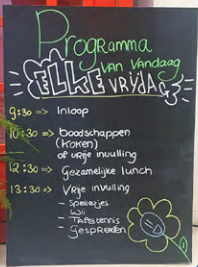 Programma
van vandaag
ELKE VRIJDAG
9:30 => Inloop
10:30 => boodschappen
(koken)
of vrije invulling
12:30 => Gezamelijke lunch
13:30 => Vrije invulling
- Spelletjes
- Wii
- Tafeltennis
- Gesprekken